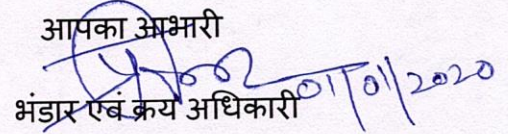 आपका आभारी
01/01/2020
भंडार एवं क्रय अधिकारी